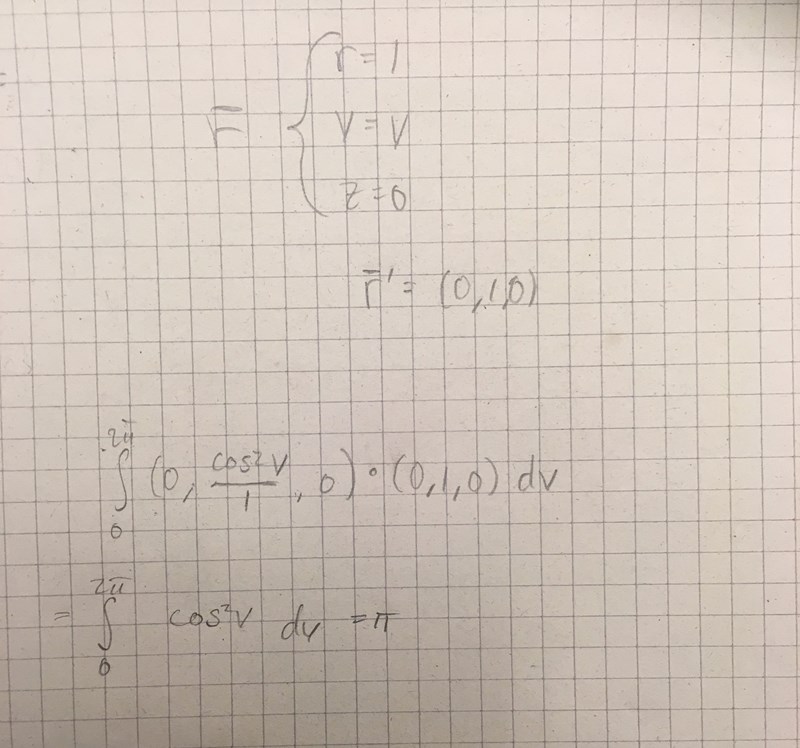 r = 1
Γ { v = v
z = 0
r̄' = (0, 1, 0)
∫₀^2π (0, cos²v/1, 0) • (0, 1, 0) dv
= ∫₀^2π cos²v dv = π